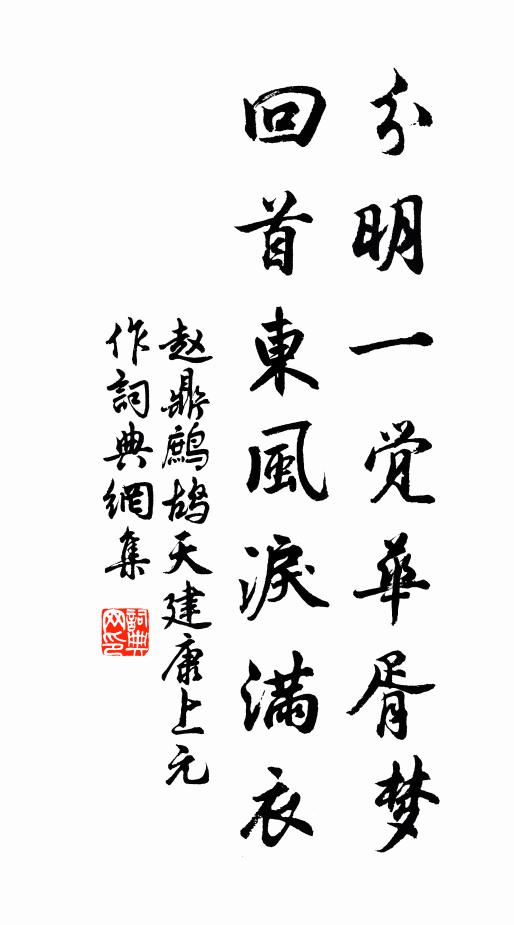 分明一觉華胥梦
回首東風淚滿衣
赵鼎鷓鴣天建康上元
作詞典網集
詞典
网印